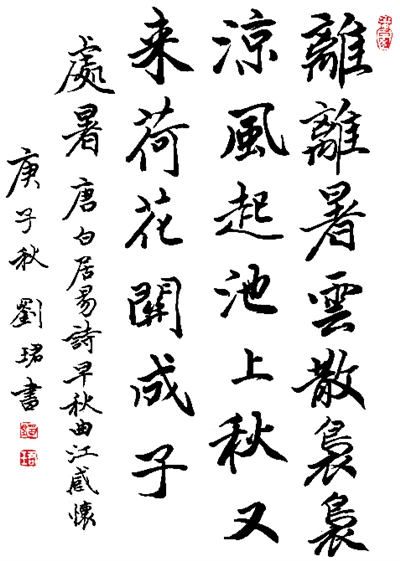 離離暑雲散裊裊
涼風起池上秋又
来荷花開成子
處暑 唐白居易詩早秋曲江感懷
庚子秋 劉珺書